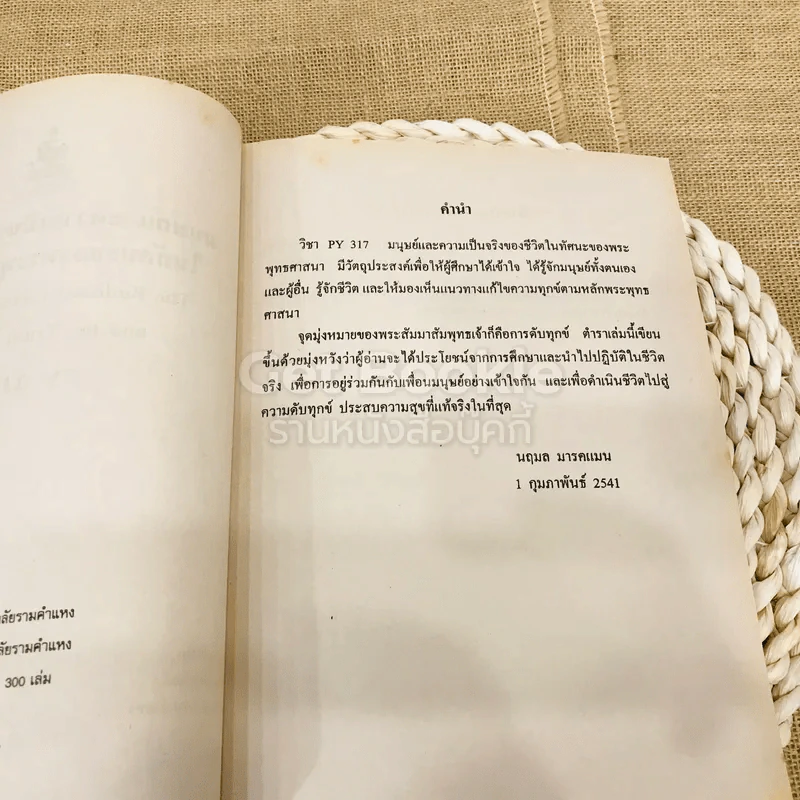 ลัยรามคำแหง
ลัยรามคำแหง
300 เล่ม
คำนำ
วิชา PY 317 มนุษย์และความเป็นจริงของชีวิตในทัศนะของพระ
พุทธศาสนา มีวัตถุประสงค์เพื่อให้ผู้ศึกษาได้เข้าใจ ได้รู้จักมนุษย์ทั้งตนเอง
และผู้อื่น รู้จักชีวิต และให้มองเห็นแนวทางแก้ไขความทุกข์ตามหลักพระพุทธ
ศาสนา
จุดมุ่งหมายของพระสัมมาสัมพุทธเจ้าก็คือการดับทุกข์ ตำราเล่มนี้เขียน
ขึ้นด้วยมุ่งหวังว่าผู้อ่านจะได้ประโยชน์จากการศึกษาและนำไปปฏิบัติในชีวิต
จริง เพื่อการอยู่ร่วมกันกับเพื่อนมนุษย์อย่างเข้าใจกัน และเพื่อดำเนินชีวิตไปสู่
ความดับทุกข์ ประสบความสุขที่แท้จริงในที่สุด
ร้านหนังสือบุ๊คกี้
นฤมล มารคแมน
1 กุมภาพันธ์ 2541